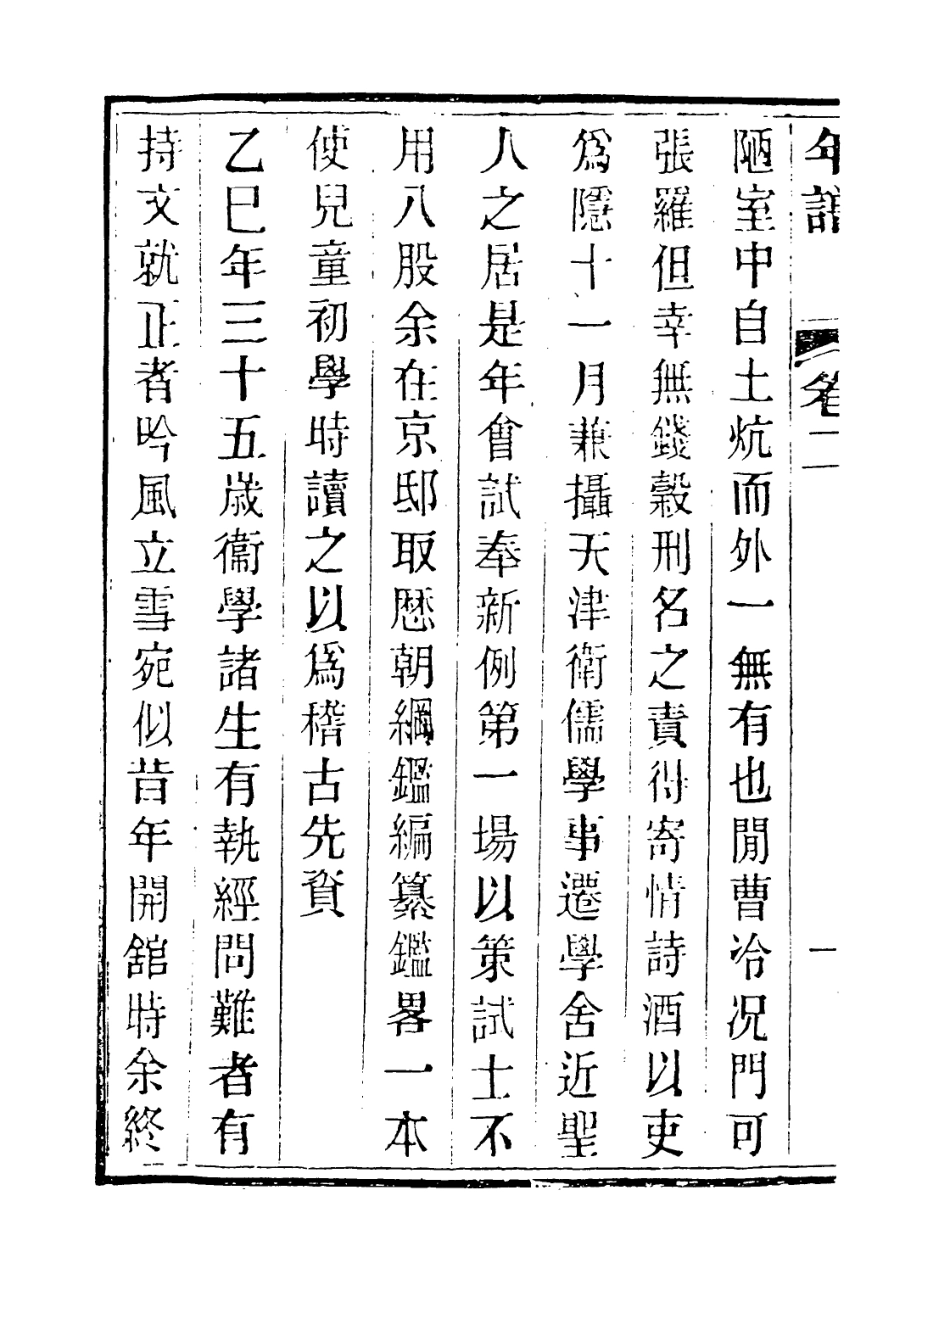 年譜 卷二 一
陋室中自土炕而外一無有也閒曹冷况門可
張羅但幸無錢穀刑名之責得寄情詩酒以吏
爲隱十一月兼攝天津衛儒學事遷學舍近聖
人之居是年會試奉新例第一場以策試士不
用八股余在京邸取歷朝綱鑑編纂鑑畧一本
使兒童初學時讀之以爲稽古先資
乙巳年三十五歲衞學諸生有執經問難者有
持文就正者吟風立雪宛似昔年開舘時余終